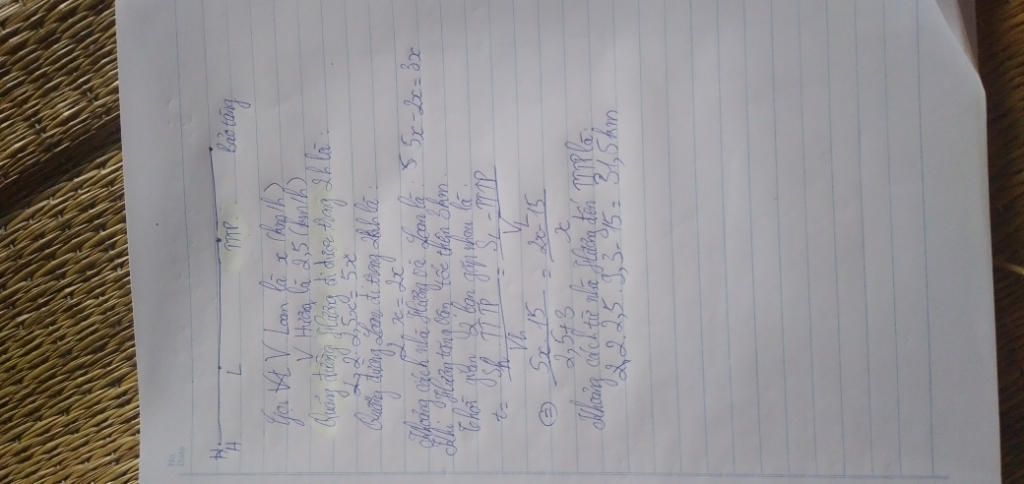 H L MP. bảo tàng
H
Gọi V Loan là x (km/h)
V Hằng là 2,5 (km/h)
Quãng đường Hằng đi được trong 2h là:
2. 2,5x = 5x
Quãng đường Loan đi trong 2h là:
2. x = 2x
Khoảng cách nhà Hằng và Loan là: 5x - 2x = 3x
Khi Hằng tăng vận tốc thêm 3km.
thời gian 2 bạn gặp nhau là:
t =
⇔ 5x - 15 / 2,5+3 = 2x - 15 / x
Khoảng cách từ nhà Hằng đến MP là:
2. 2,5. 9,3 - 15 = 31,5 km